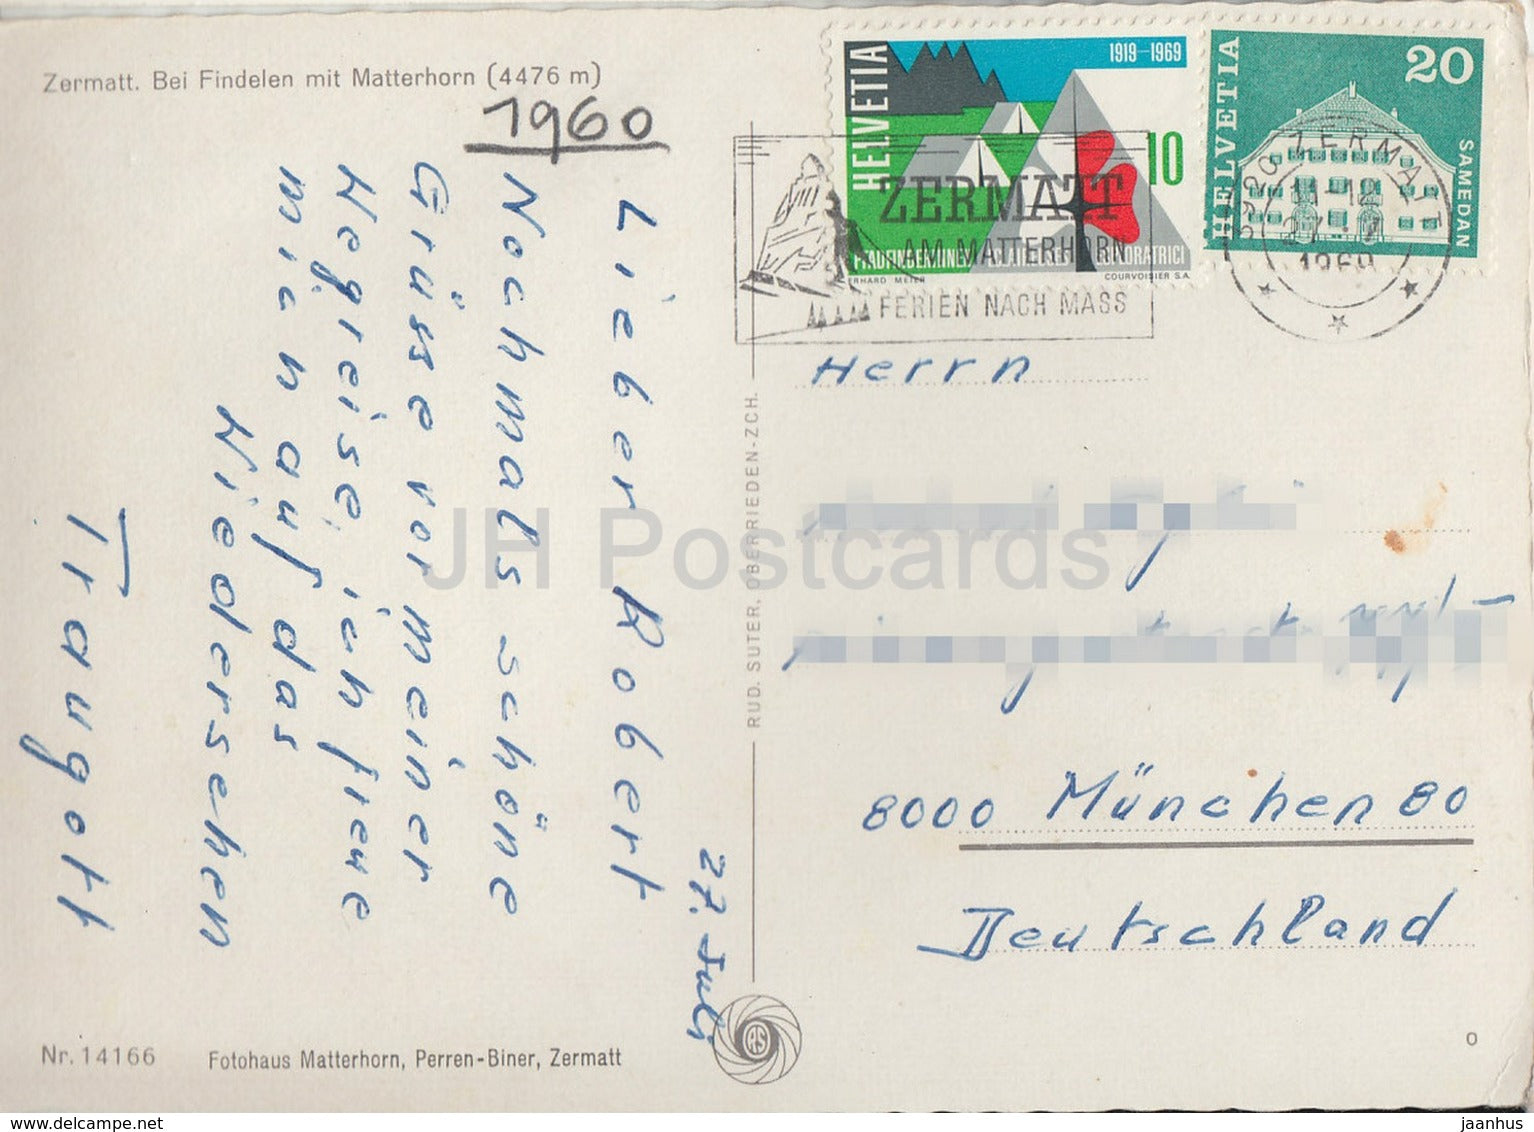 Zermatt. Bei Findelen mit Matterhorn (4476 m)
1960
27. Juli
Lieber Robert
Nochmals schöne
Grüsse vor meiner
Wegreise, ich freue
mich auf das
Wiedersehen
Traugott
Nr. 14166
Fotohaus Matterhorn, Perren-Biner, Zermatt
RUD. SUTER, OBERRIEDEN-ZCH.
RS
HELVETIA
1919-1969
10
COURVOISIER S.A.
HELVETIA
20
SAMEDAN
ZERMATT
AM MATTERHORN
FERIEN NACH MASS
3920 ZERMATT
1969
Herrn
8000 München 80
Deutschland
0
JH Postcards
www.delcampe.net
jaanhus